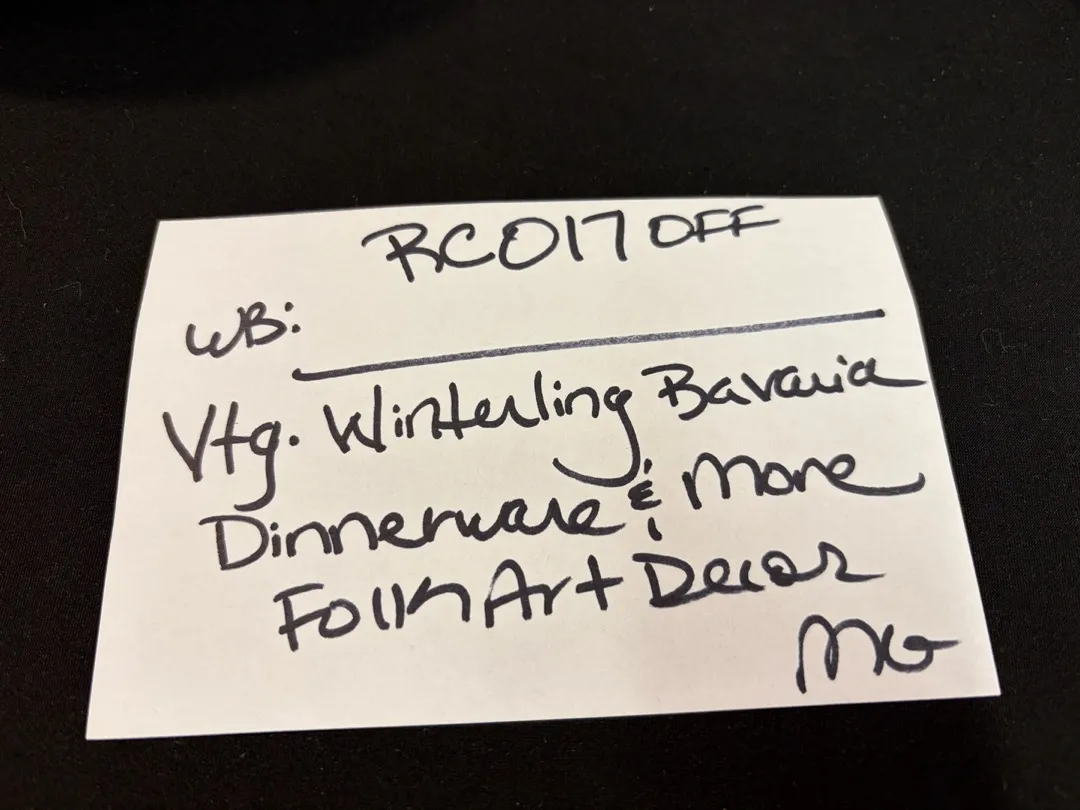 RCO17 OFF
WB:
Vtg. Winterling Bavaria
Dinnerware & More
Folk Art Decor
MG